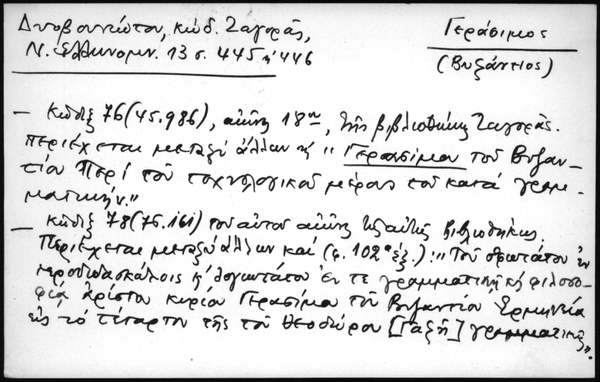 Δυοβουνιώτου, κώδ. Ζαγορᾶς,
Ν. Ἑλληνομν. 13 σ. 445 κ' 446
Γεράσιμος
(Βυζάντιος)
— Κῶδιξ 76 (45.986), αἰῶνος 18ου, τῆς βιβλιοθήκης Ζαγορᾶς.
Περιέχεται μεταξὺ ἄλλων κ' "Γερασίμου τοῦ Βυζαν-
τίου Περὶ τοῦ τεχνολογικοῦ μέρους τοῦ κατὰ γραμ-
ματικήν."
— Κῶδιξ 78 (76.161) τοῦ αὐτοῦ αἰῶνος τῆς αὐτῆς βιβλιοθήκης.
Περιέχεται μεταξὺ ἄλλων καὶ (φ. 102α ἑξ.): "Τοῦ σοφωτάτου ἐν
ἱεροδιδασκάλοις κ' λογιωτάτου ἔν τε γραμματικῇ κ' φιλοσο-
φίᾳ ἀρίστου κυρίου Γερασίμου τοῦ Βυζαντίου Ἑρμηνεία
εἰς τὸ τέταρτον τῆς τοῦ Θεοδώρου [Γαζῆ] γραμματικῆς".